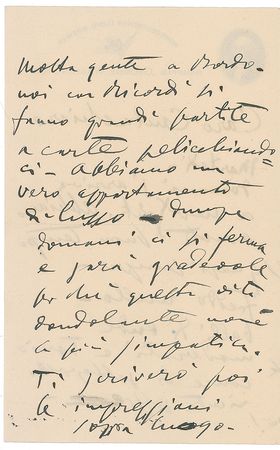 molta gente a bordo -
noi con Ricordi si
fanno grandi partite
a carte pelicchiando=
ci - abbiamo un
vero appartamento
di lusso - dunque
domani ci si ferma
e sarà gradevole
perché questa vita
dondolante non è
la più simpatica.
Ti scriverò poi
le impressioni
sopra luogo.